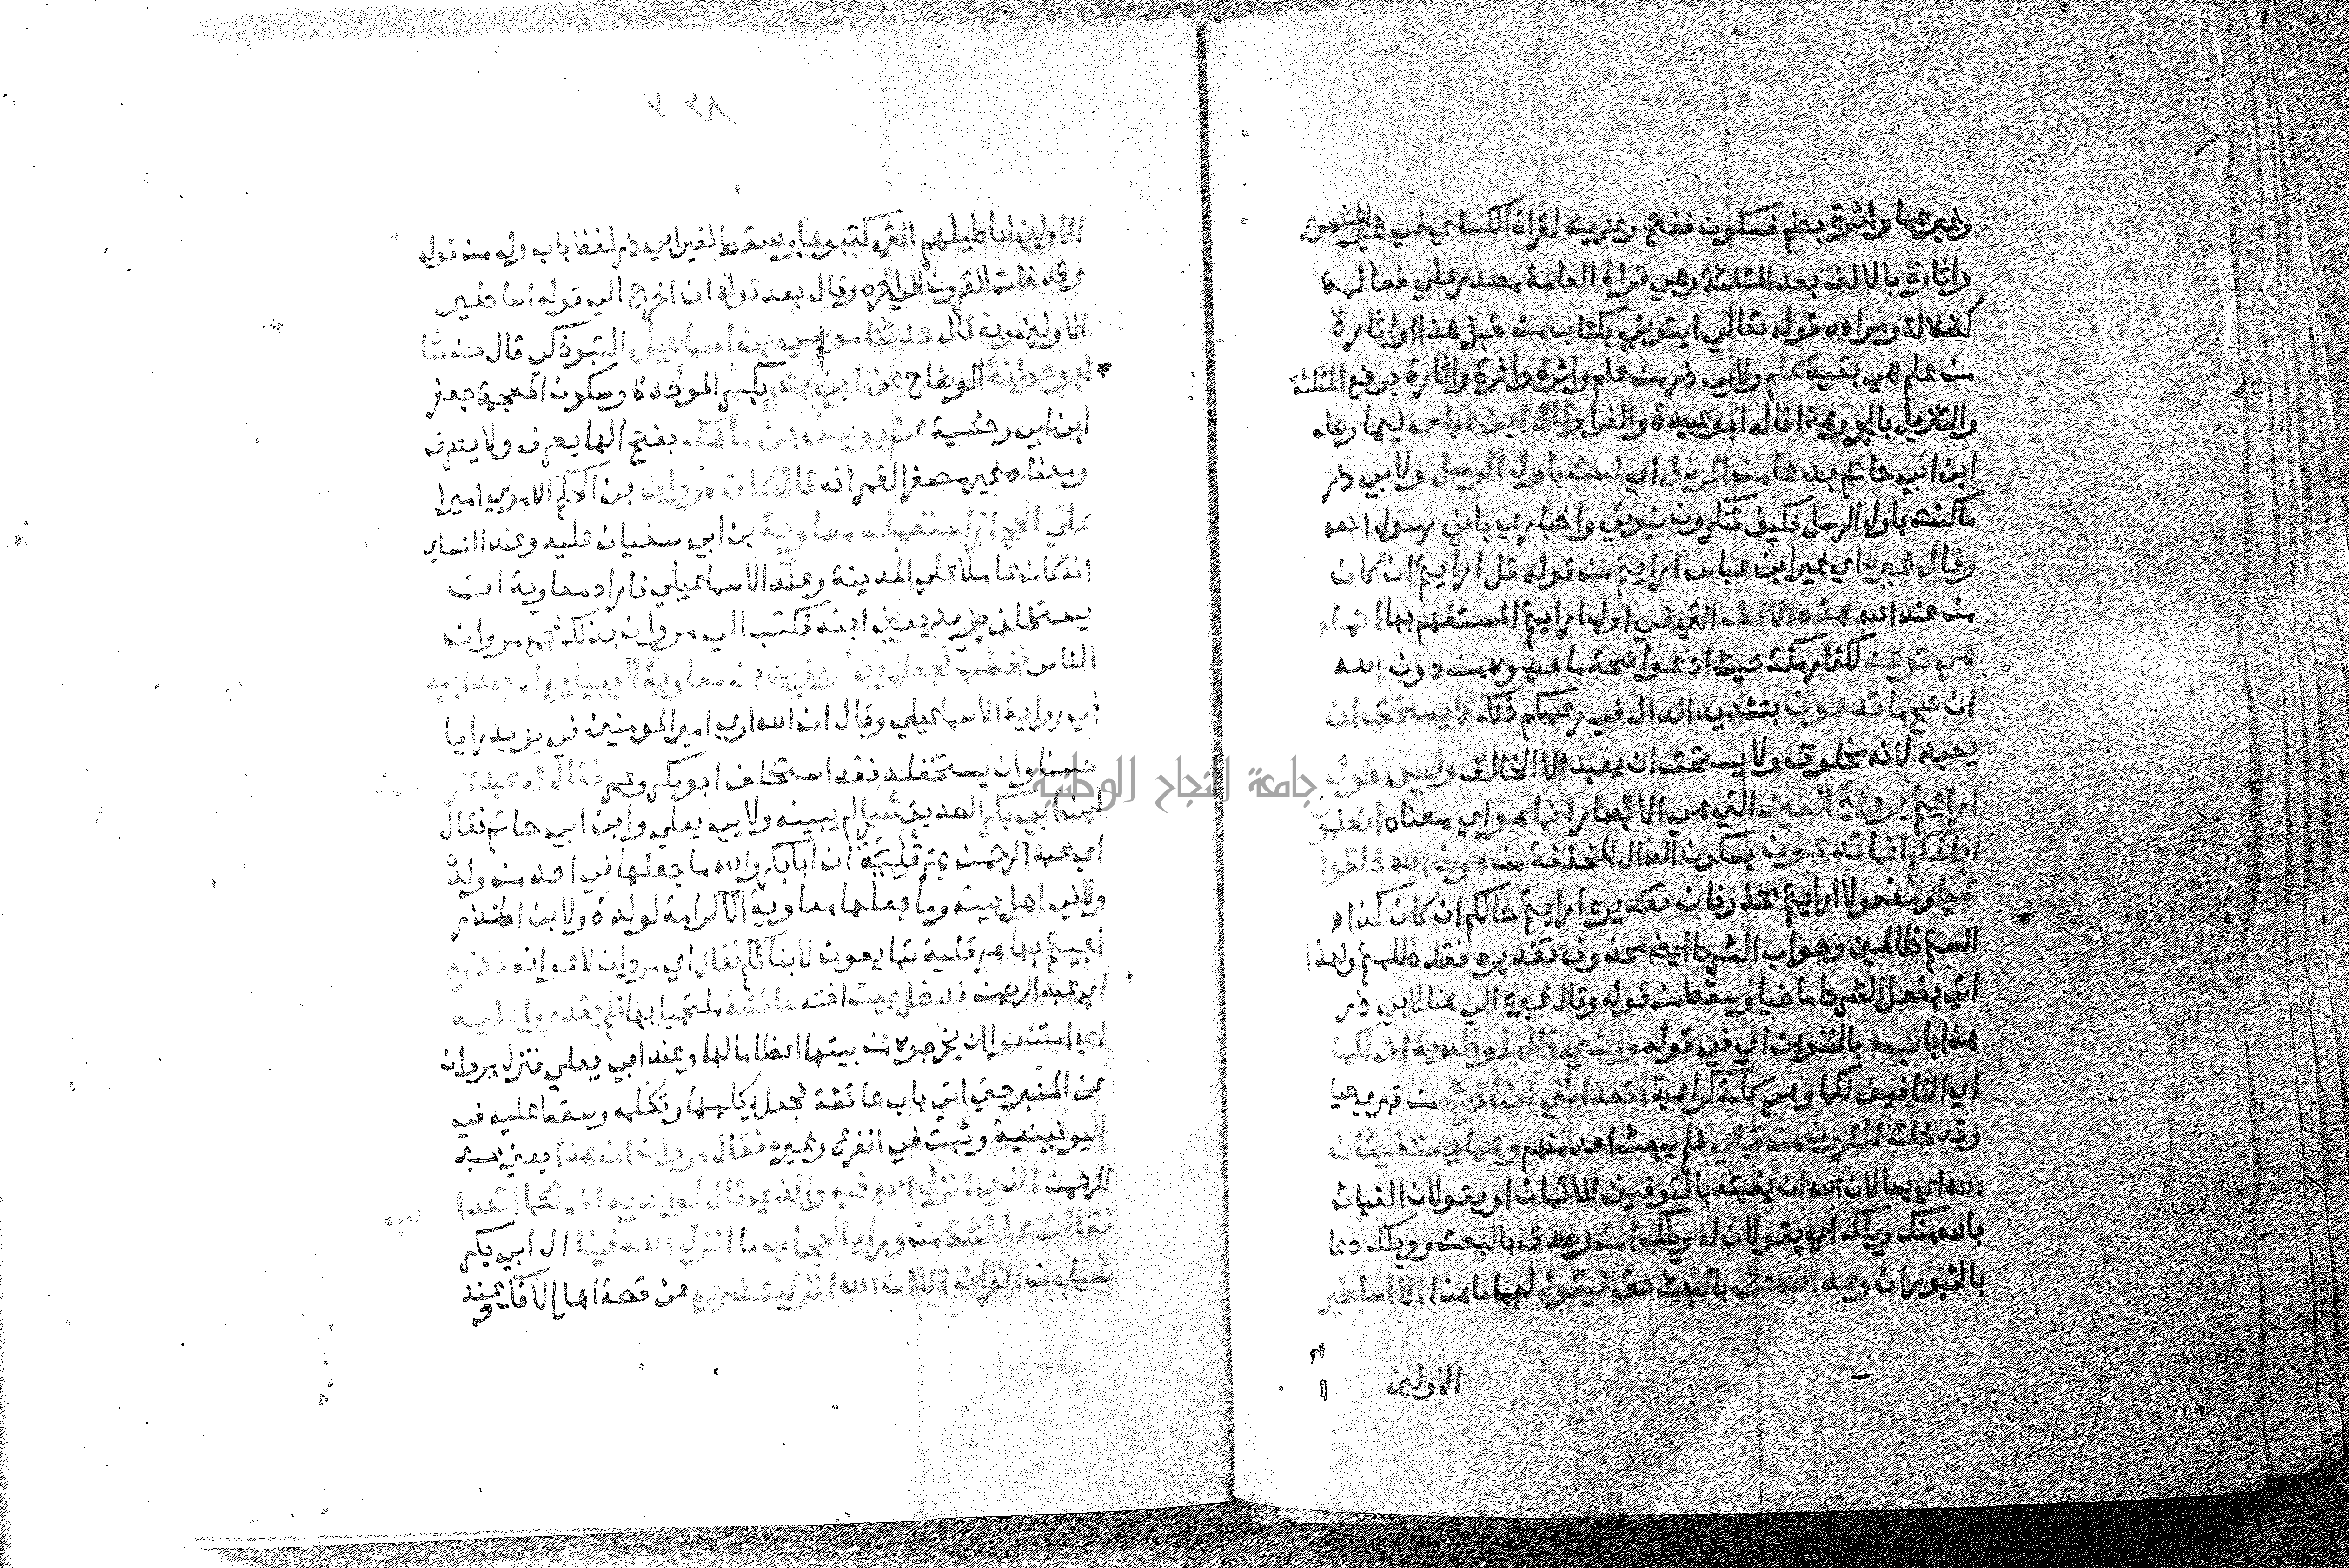 وغيرهما واثرة بضم فسكون ففتح وعزيت لقراة الكسائي في غير المشهور
واثارة بالالف بعد المثلثة وهي قراة العامة مصدر علي فعالة
كضلالة ومراده قوله تعالي ايتوني بكتاب من قبل هذا او اثارة
من علم هي بقية علم ولابي ذر من علم واثرة واثرة واثارة برفع المثلثة
والتنزيل بالجر وهذا قاله ابو عبيدة والفرا وقال ابن عباس فيما رواه
ابن ابي حاتم بدعا من الرسل اي لست باول الرسل ولابي ذر
ما كنت باول الرسل فكيف تنكرون نبوتي واخباري باني رسول الله
وقال غيره اي غير ابن عباس ارايتم من قوله قل ارايتم ان كان
من عند الله هذه الالف التي في اول ارايتم المستفهم بها انما
هي توعد لكفار مكة حيث ادعوا صحة ما عبدوه من دون الله
ان صح ما تدعون بتشديد الدال في زعمكم ذلك لا يستحق ان
يعبد لانه مخلوق ولا يستحق ان يعبد الا الخالق وليس قوله
ارايتم بروية العين التي هي الابصار انما هو اي معناه اتعلمون
ابلغكم ان ما تدعون بسكون الدال المخففة من دون الله خلقوا
شيا ومفعولا ارايتم محذوفان تقديره ارايتم حالكم ان كان كذا
الستم ظالمين وجواب الشرط ايضا محذوف تقديره فقد ظلمتم ولهذا
اتي بفعل الشرط ماضيا وسقط من قوله وقال غيره الي هنا لابي ذر
هذا باب بالتنوين اي في قوله والذي قال لوالديه اف لكما
اي التافيف لكما وهي كلمة كراهية اتعدانني ان اخرج من قبري حيا
وقد خلت القرون من قبلي فلم يبعث احد منهم وهما يستغيثان
الله اي يسالان الله ان يغيثه بالتوفيق للايمان او يقولان الغياث
بالله منك ويلك اي يقولان له ويلك امن وصدق بالبعث وويلك دعا
بالثبور ان وعد الله حق بالبعث حق فيقول لهما ما هذا الا اساطير
الاولين
٣٣٨
الاولين اباطيلهم التي كتبوها وسقط لغير ابي ذر لفظ باب وله من قوله
وقد خلت القرون الي اخره وقال بعد قوله ان اخرج الي قوله اساطير
الاولين وبه قال حدثنا موسي بن اسماعيل التبوذكي قال حدثنا
ابو عوانة الوضاح عن ابي بشر بكسر الموحدة وسكون المعجمة جعفر
ابن ابي وحشية عن يوسف بن ماهك بفتح الها يصرف ولا يصرف
ومعناه قمير مصغر القمر انه قال كان مروان بن الحكم الاموي اميرا
علي الحجاز استعمله معاوية بن ابي سفيان عليه وعند النساي
انه كان عاملا علي المدينة وعند الاسماعيلي فاراد معاوية ان
يستخلف يزيد يعني ابنه فكتب الي مروان بذلك فجمع مروان
الناس فخطب فجعل يذكر يزيد بن معاوية لكي يبايع له بعد ابيه
في رواية الاسماعيلي وقال ان الله اري امير المومنين في يزيد رايا
حسنا وان يستخلفه فقد استخلف ابو بكر وعمر فقال له عبد الرحمن
ابن ابي بكر الصديق شيا لم يبينه ولابي يعلي وابن ابي حاتم فقال
اي عبد الرحمن هرقلية ان ابا بكر والله ما جعلها في احد من ولده
ولا في اهل بيته وما جعلها معاوية الا كرامة لولده ولابن المنذر
اجيتم بها هرقلية تبايعون لابنائكم فقال اي مروان لاعوانه خذوه
اي عبد الرحمن فدخل بيت اخته عائشة ملتجيا بها فلم يقدروا عليه
اي امتنعوا ان يخرجوه من بيتها اعظاما لها وعند ابي يعلي فنزل مروان
عن المنبر حتي اتي باب عائشة فجعل يكلمها وتكلمه وسقط عليه في
اليونينية وثبت في الفرع وغيره فقال مروان ان هذا يعني عبد
الرحمن الذي انزل الله فيه والذي قال لوالديه اف لكما اتعدانني
فقالت عائشة من وراء الحجاب ما انزل الله فينا ال ابي بكر
شيا من القران الا ان الله انزل عذري عن قصة اهل الافك وعند